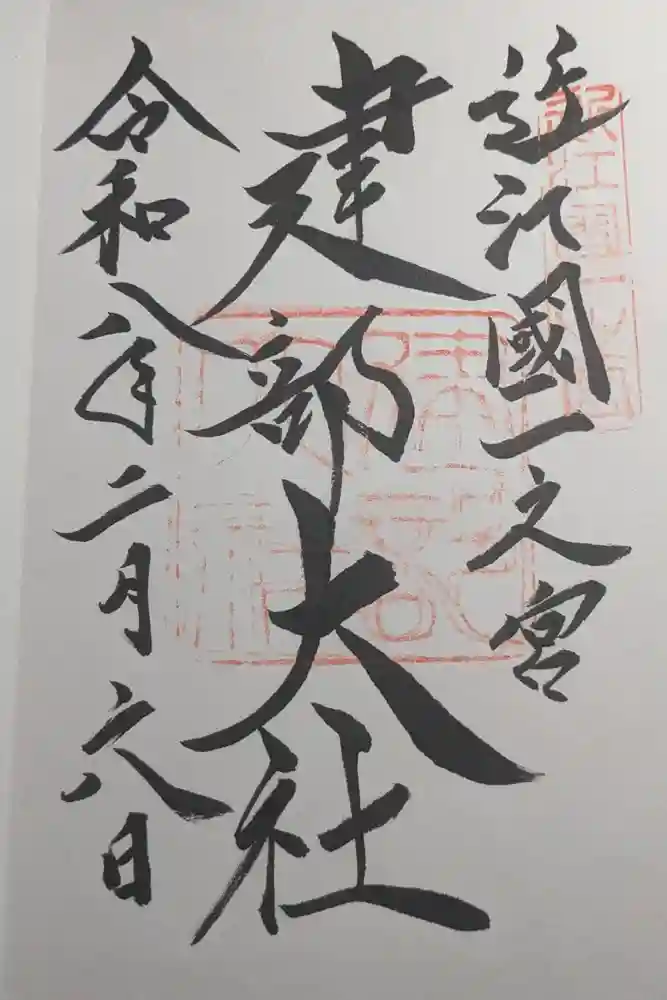 近江國一之宮
建部大社
令和八年二月六日